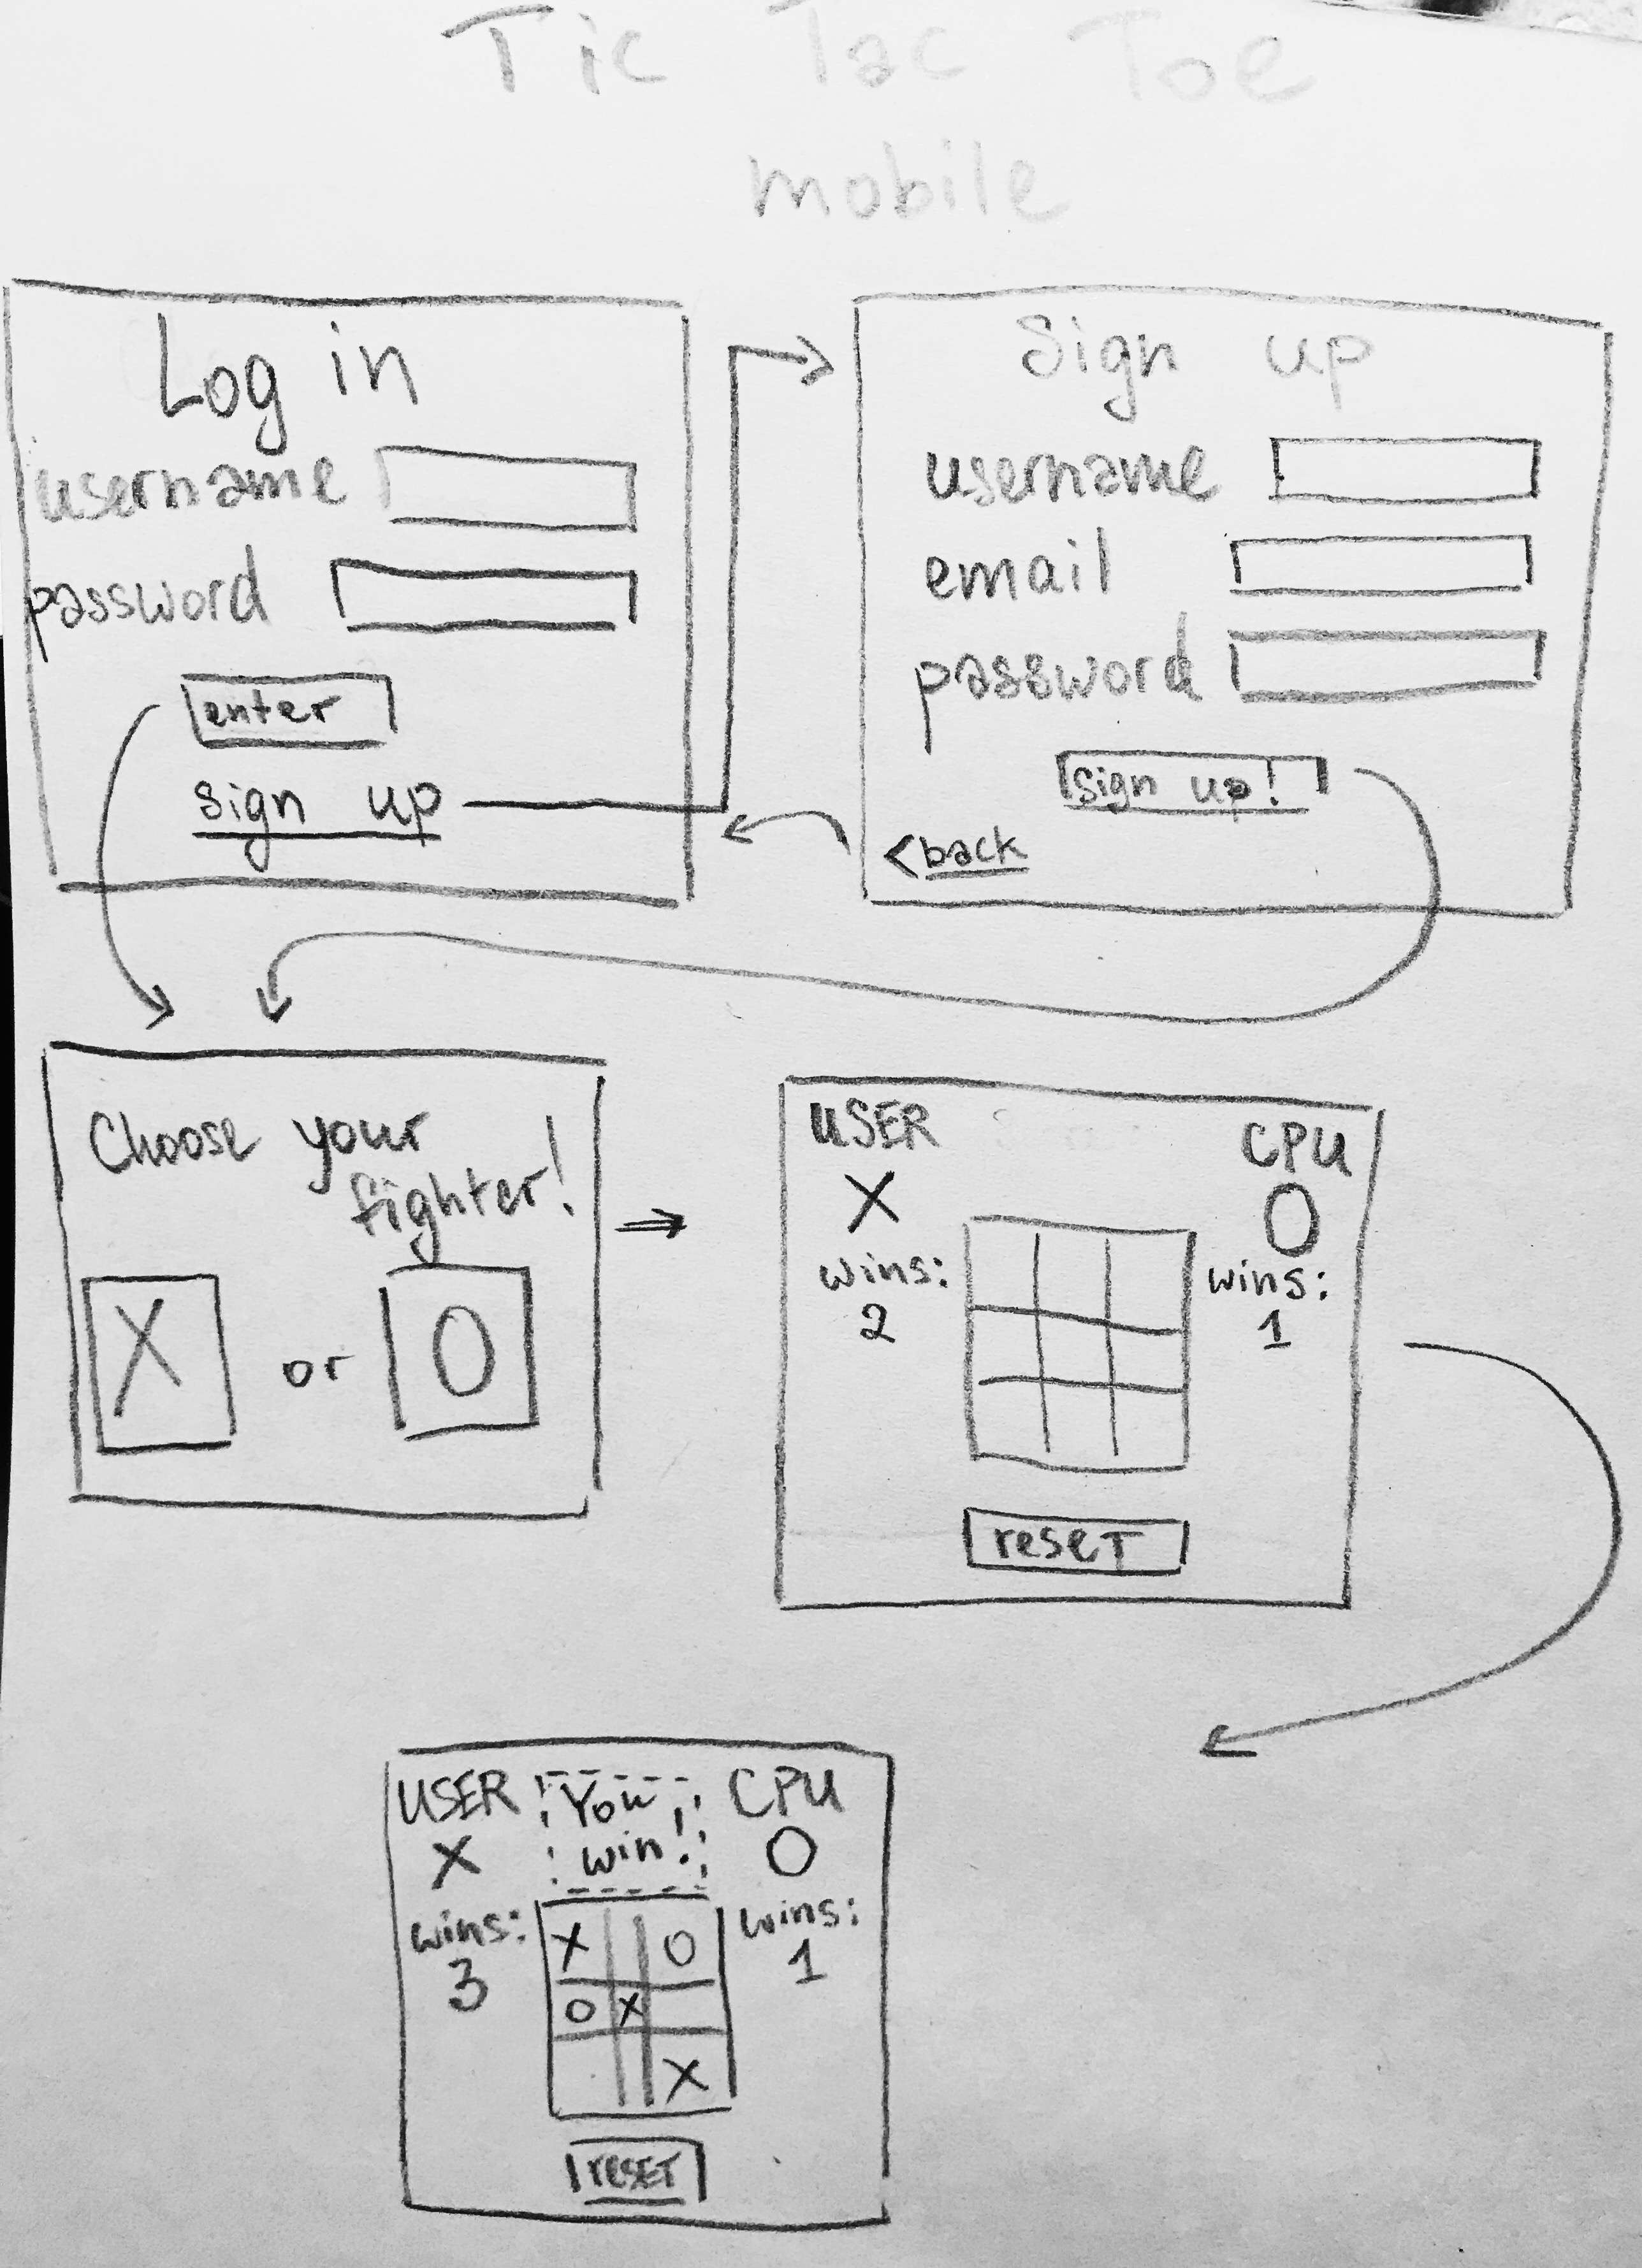 Tic Tac Toe
mobile
Log in
username
password
enter
sign up
Sign up
username
email
password
sign up!
<back
Choose your
fighter!
X or O
USER
X
wins:
2
CPU
O
wins:
1
reset
USER
X
wins:
3
You
win!
CPU
O
wins:
1
X O
O X
X
reset